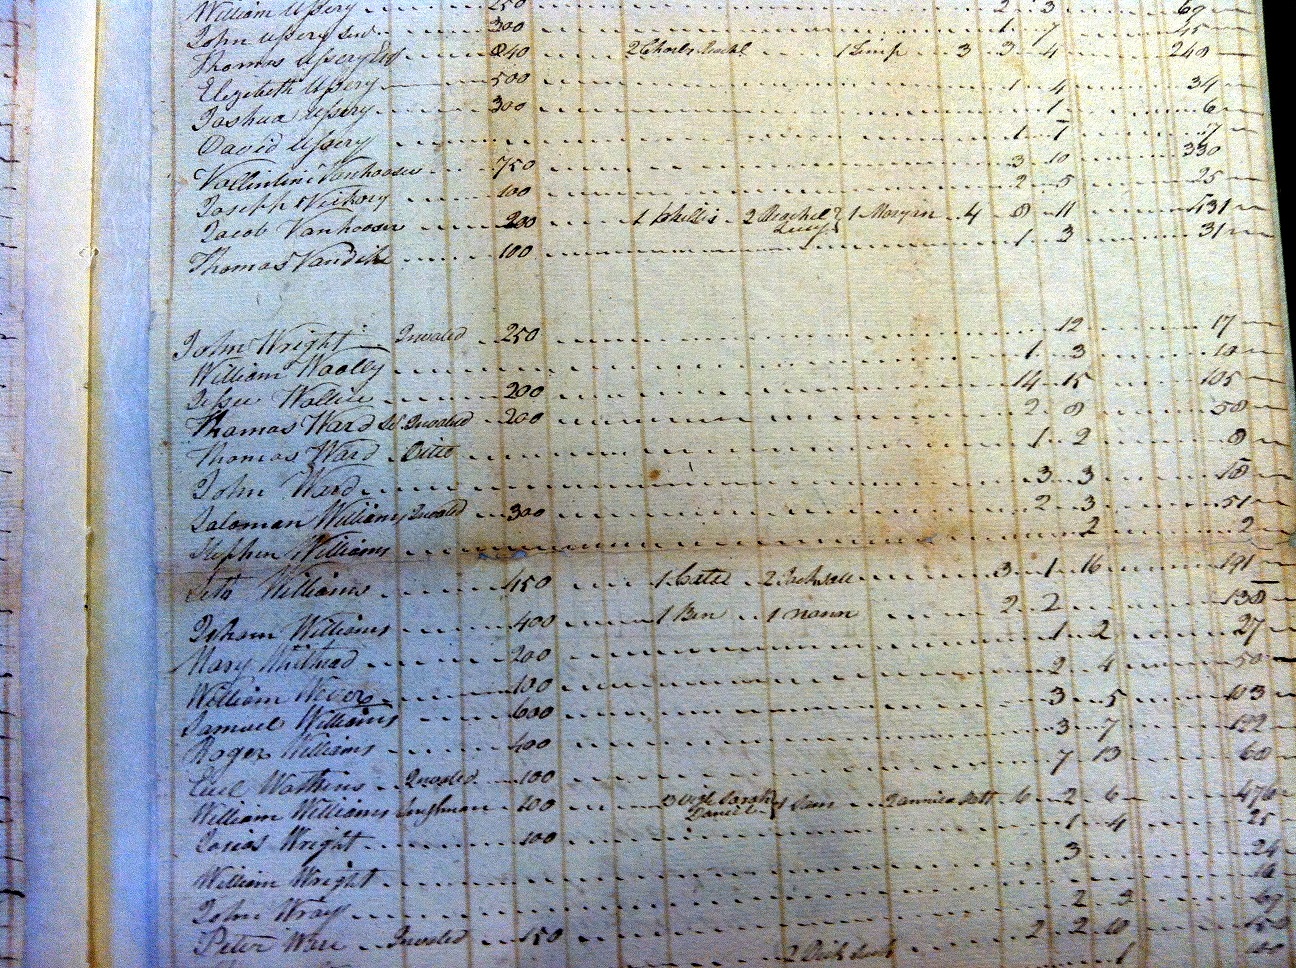 William Ussery 250 2 3 69
John Ussery Sen 300 1 7 45
Thomas Ussery 840 2 Charls 1 Simp 3 3 4 240
Elizabeth Ussery 500 1 4 34
Joshua Ussery 300 1 6
David Ussery 1 7 7
Vallintine Vanhooser 750 3 10 330
Joseph Vickory 100 2 5 25
Jacob Vanhooser 200 1 Phillis 2 Reachel & Lucy 1 Morgin 4 8 11 431
Thomas Vandike 100 1 3 31
John Wright Invaled 250 12 17
William Woolley 1 3 10
200 14 15 105
Thomas Ward Invaled 200 2 8 58
Thomas Ward Ditto 1 2 8
John Ward 3 3 18
Saloman Williams Invaled 300 2 3 51
Stephen Williams 2 2
Seth Williams 450 1 2 3 1 16 191
Isham Williams 400 1 Ben 1 Nann 2 2 138
Mary 200 1 2 27
William 100 2 4 50
Samuel Williams 600 3 5 103
Roger Williams 400 3 7 122
Watkins Invaled 100 7 13 60
William Williams 100 3 Sarah Daniel 1 Sam 2 6 2 6 476
Josias Wright 100 1 4 25
William Wright 3 24
John Wray 2 3
Peter Ware Invaled 150 2 2 10
2 Dick 1